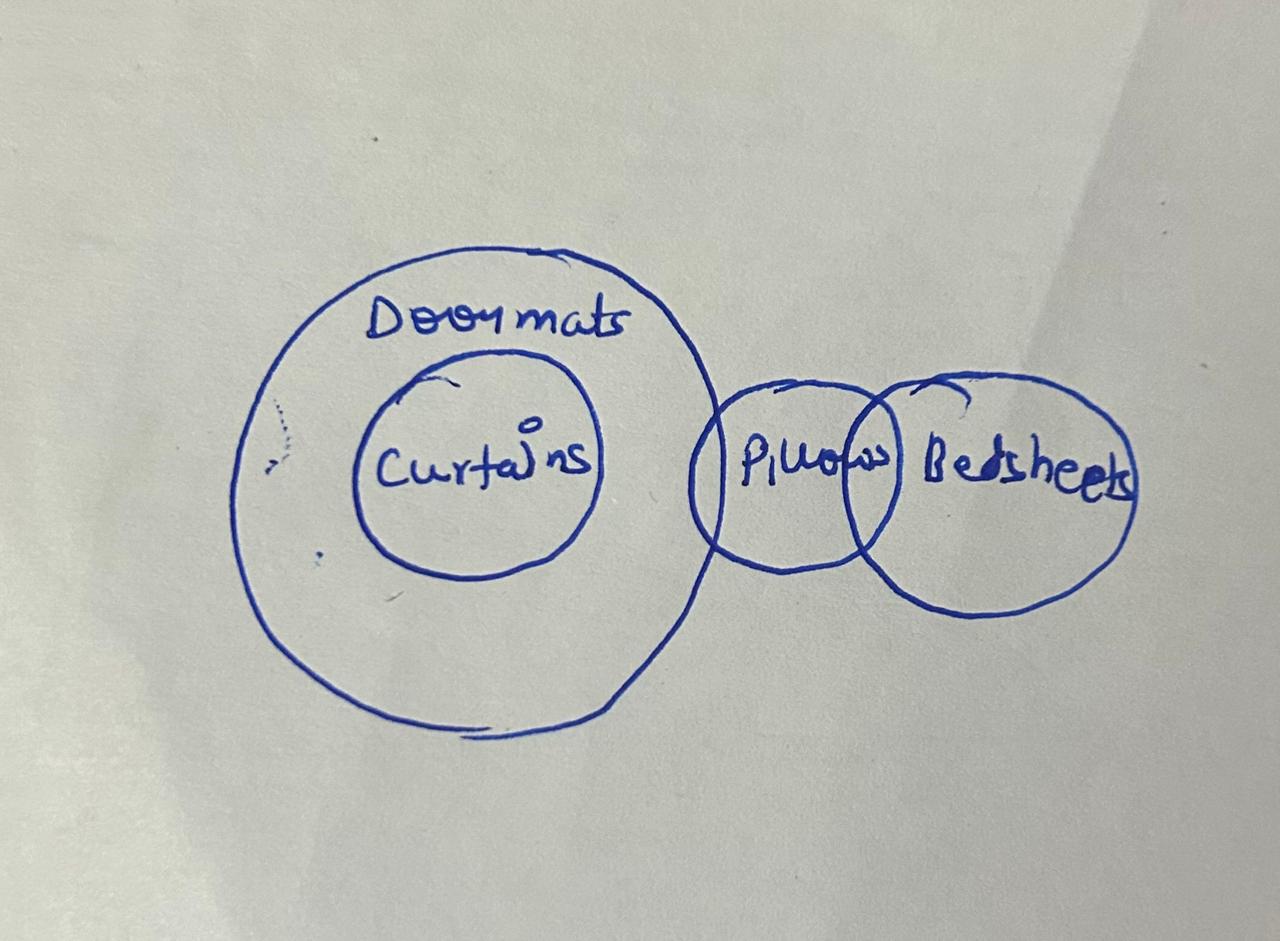 Doormats
Curtains
Pillows
Bedsheets